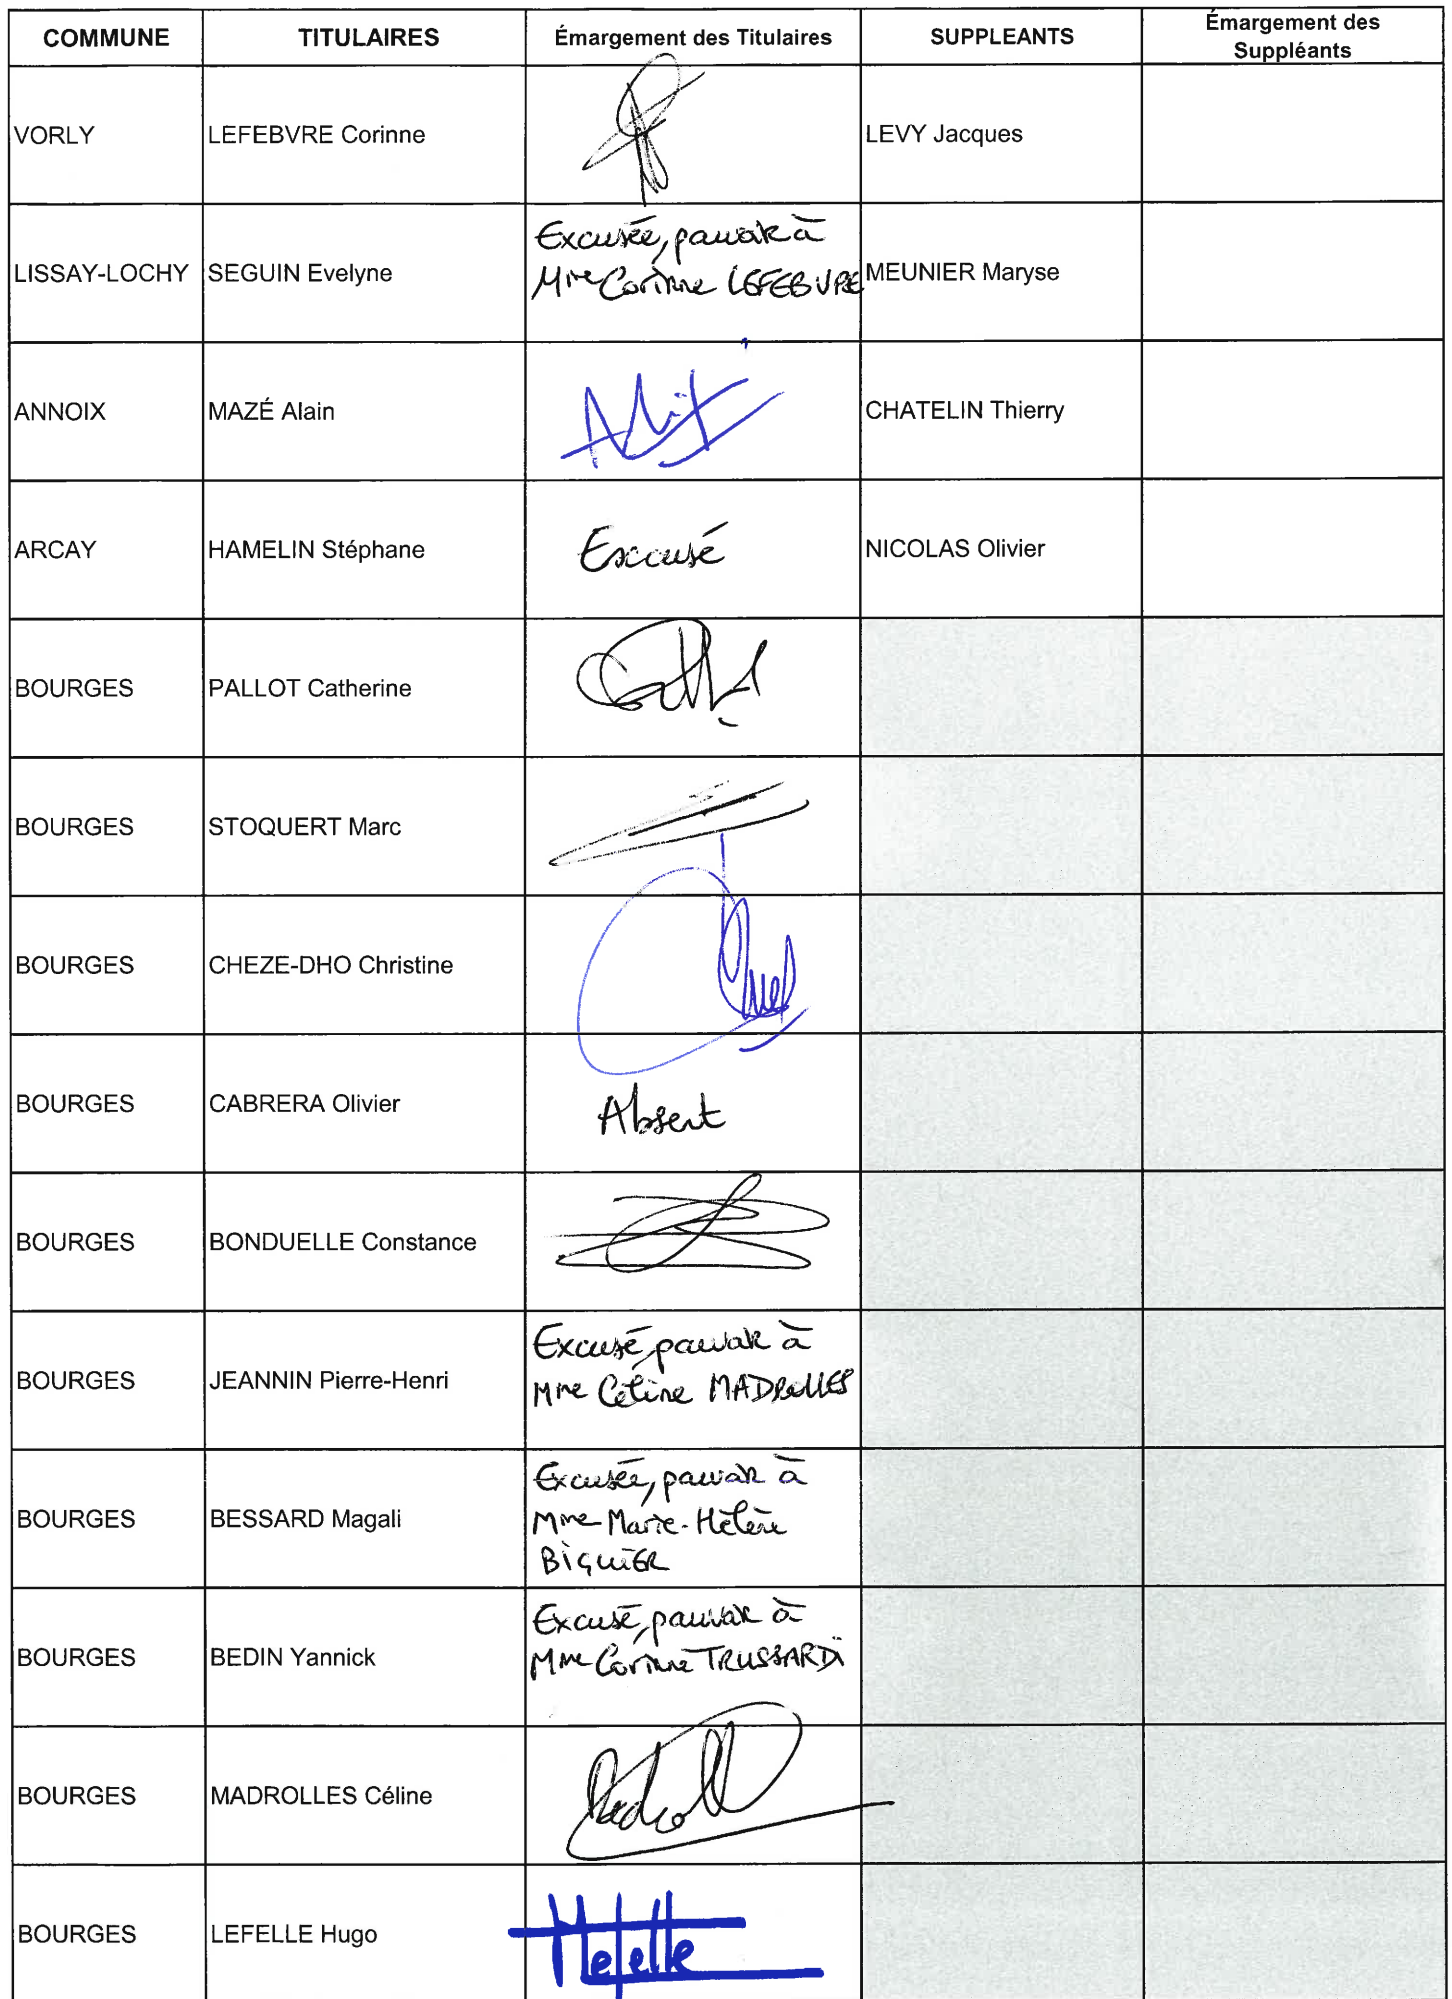 COMMUNE TITULAIRES Émargement des Titulaires SUPPLEANTS Émargement des
Suppléants
VORLY LEFEBVRE Corinne LEVY Jacques
LISSAY-LOCHY SEGUIN Evelyne Excusée, pouvoir à
Mme Corinne LEFEBVRE MEUNIER Maryse
ANNOIX MAZÉ Alain CHATELIN Thierry
ARCAY HAMELIN Stéphane Excusé NICOLAS Olivier
BOURGES PALLOT Catherine
BOURGES STOQUERT Marc
BOURGES CHEZE-DHO Christine
BOURGES CABRERA Olivier Absent
BOURGES BONDUELLE Constance
BOURGES JEANNIN Pierre-Henri Excusé, pouvoir à
Mme Céline MADROLLES
BOURGES BESSARD Magali Excusée, pouvoir à
Mme Marie-Hélène
BIGUIER
BOURGES BEDIN Yannick Excusé, pouvoir à
Mme Corinne TRUSSARDI
BOURGES MADROLLES Céline
BOURGES LEFELLE Hugo Hlefelle